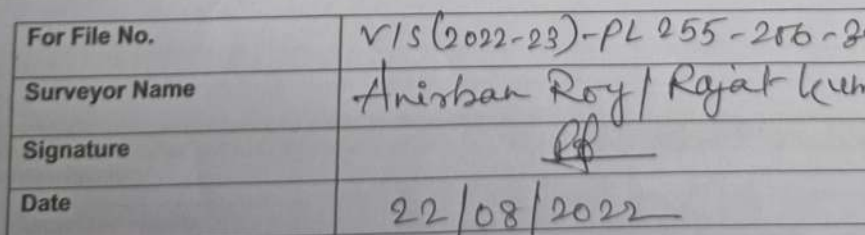 For File No. VIS(2022-23)-PL255-206-3
Surveyor Name Anirban Roy/Rajat Kum
Signature
Date 22/08/2022